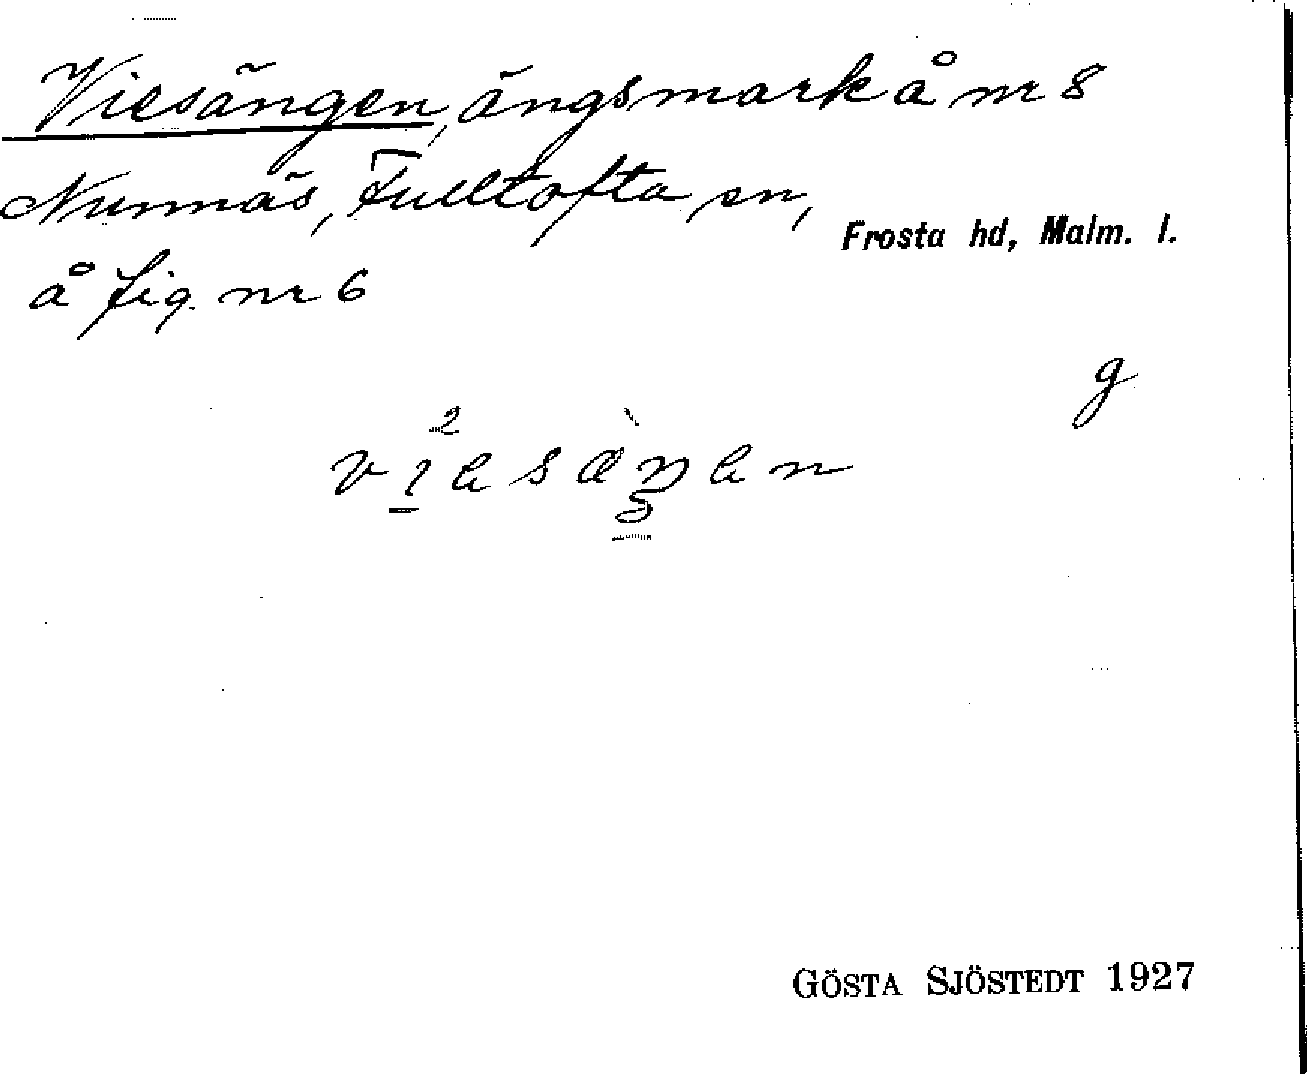 Viesängen, ängsmark å nr 8
Nunnäs, Fulltofta sn, Frosta hd, Malm. l.
å fig. nr 6
g
GÖSTA SJÖSTEDT 1927